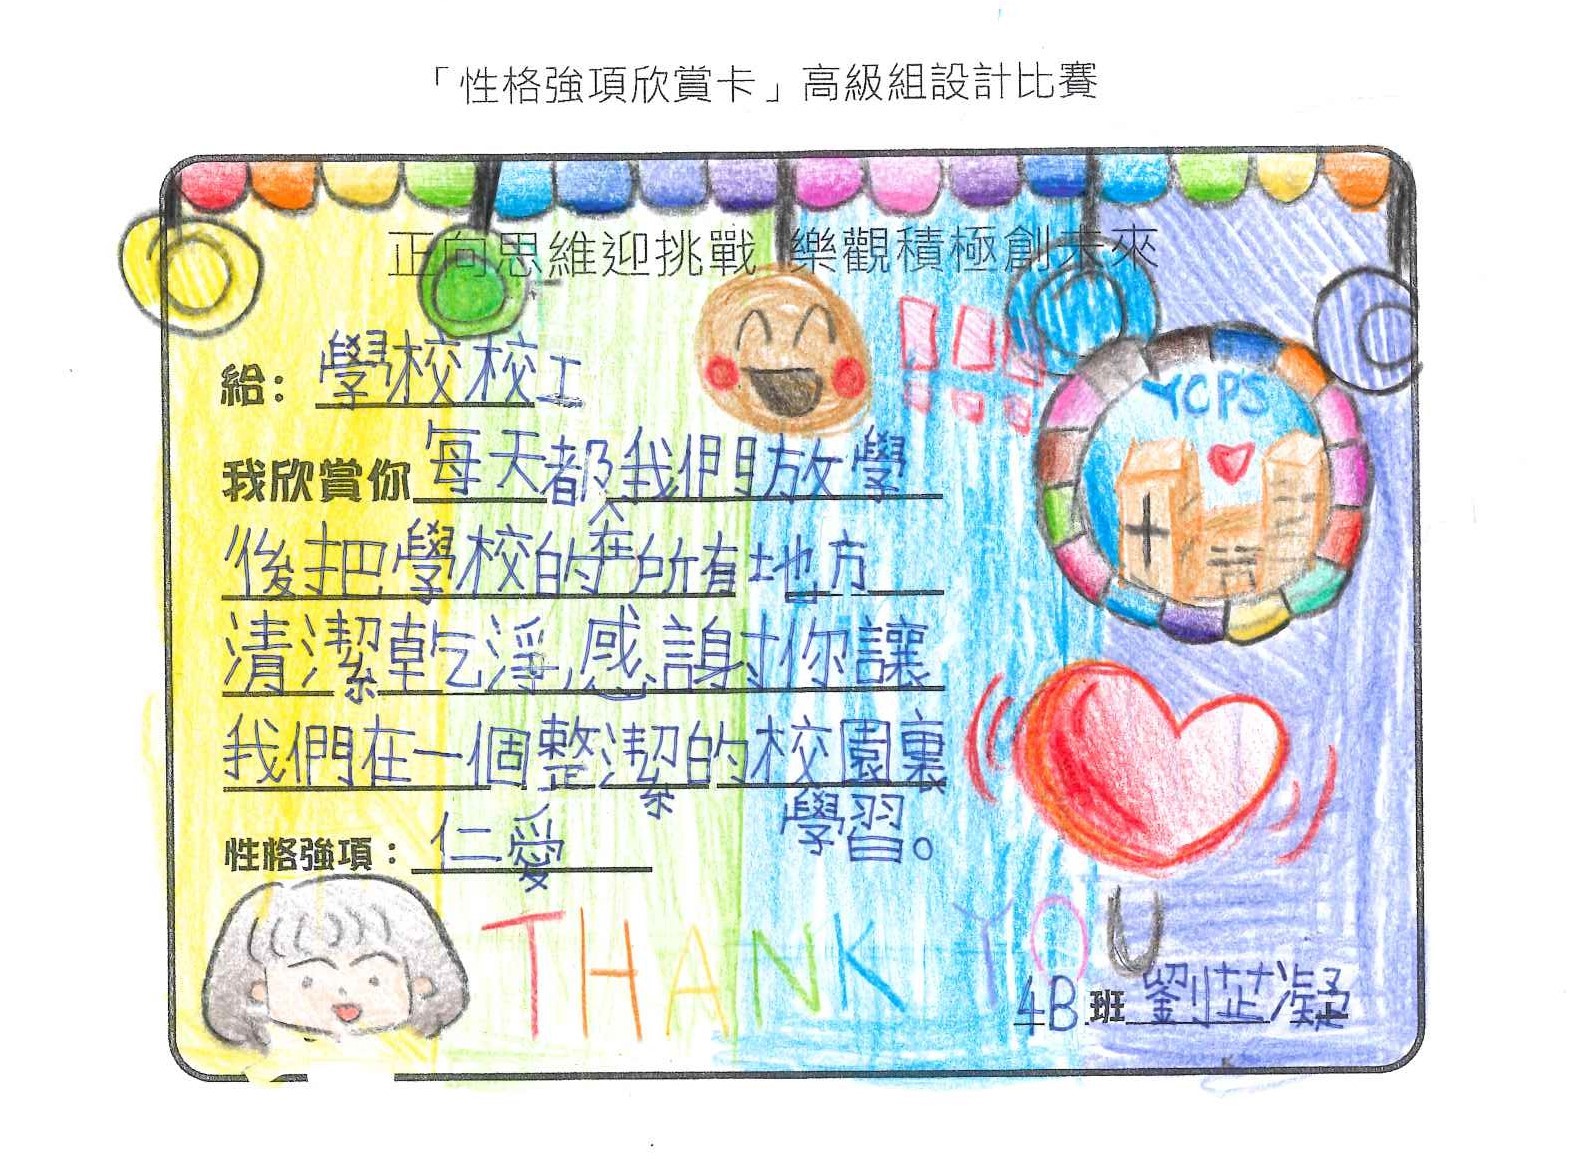 「性格強項欣賞卡」高級組設計比賽
正向思維迎挑戰 樂觀積極創未來
給：學校校工
YCPS
我欣賞你每天都我們放學
後把學校的在所有地方
清潔乾淨,感謝你讓
我們在一個整潔的校園裏
學習。
性格強項：仁愛
THANK YOU
4B班劉芷凝